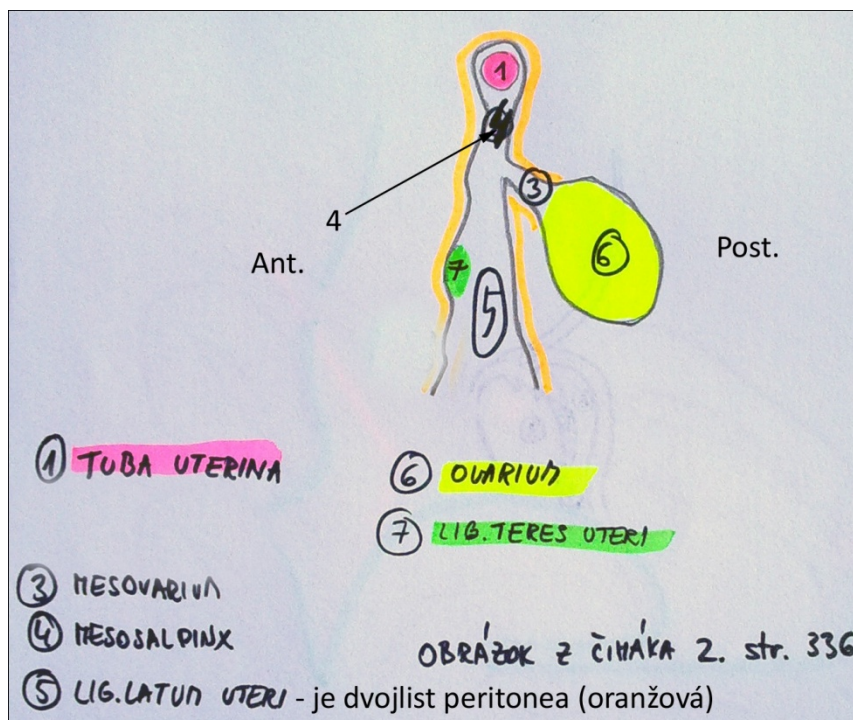 1
4
3
Ant.
Post.
6
7
5
1 TUBA UTERINA
6 OVARIUM
7 LIG. TERES UTERI
3 MESOVARIUM
4 MESOSALPINX
OBRÁZOK Z ČIHÁKA 2. str. 336
5 LIG. LATUM UTERI - je dvojlist peritonea (oranžová)